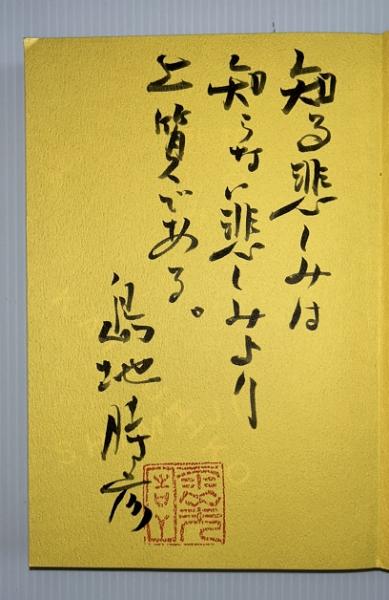 知る悲しみは
知らない悲しみより
上質である。
島地勝彦